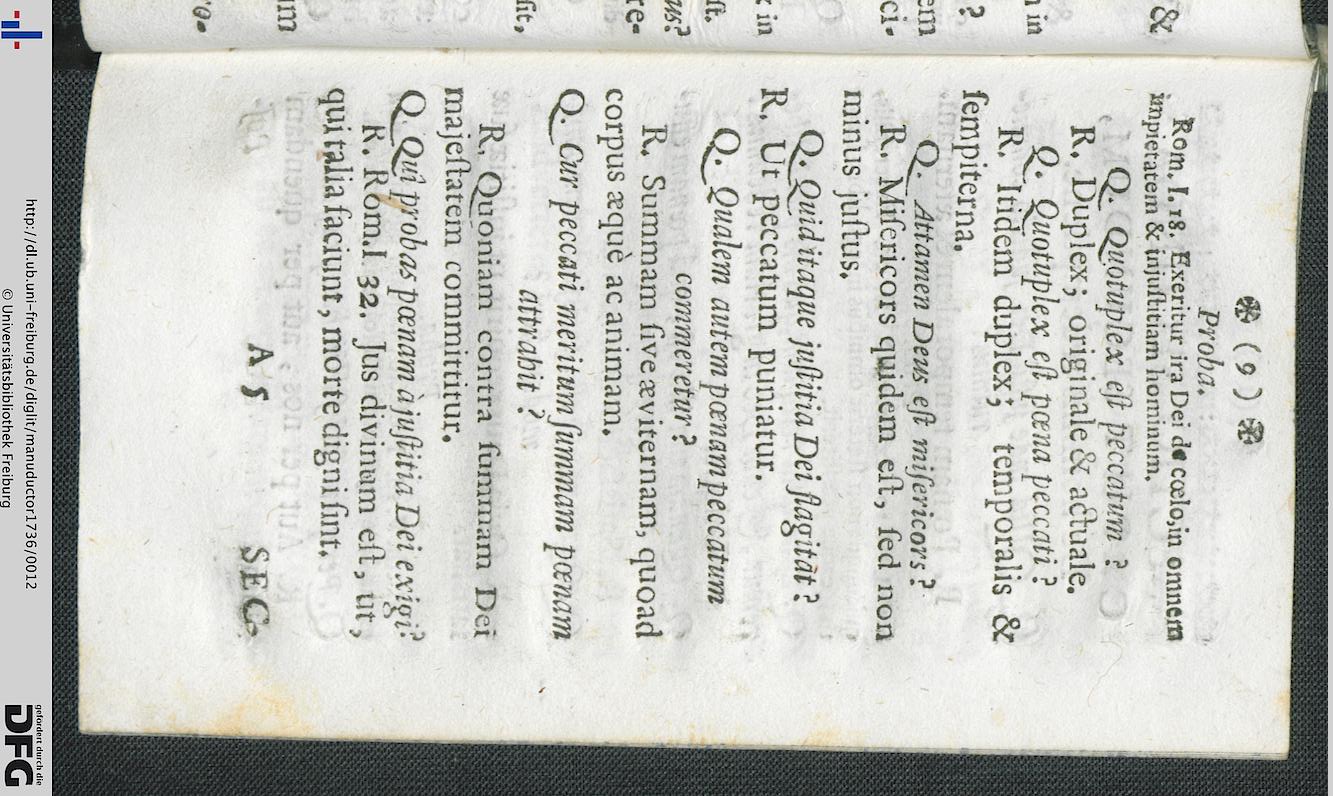 ❀ ( 9 ) ❀
Proba.
Rom. I. 18. Exeritur ira Dei de cœlo, in omnem
impietatem & injuſtitiam hominum.
Q. Quotuplex eſt peccatum ?
R. Duplex; originale & actuale.
Q. Quotuplex eſt pœna peccati ?
R. Itidem duplex; temporalis &
ſempiterna.
Q. Attamen Deus eſt miſericors ?
R. Miſericors quidem eſt, ſed non
minus juſtus.
Q. Quid itaque juſtitia Dei flagitat ?
R. Ut peccatum puniatur.
Q. Qualem autem pœnam peccatum
commeretur ?
R. Summam ſive æviternam, quoad
corpus æquè ac animam.
Q. Cur peccati meritum ſummam pœnam
attrahit ?
R. Quoniam contra ſummam Dei
majeſtatem committitur.
Q. Quî probas pœnam à juſtitia Dei exigi?
R. Rom. I 32. Jus divinum eſt, ut,
qui talia faciunt, morte digni ſint.
A 5 SEC.
&
n in
?
em
ci-
x in
ſt.
us?
re-
ſit,
um
ro.
http://dl.ub.uni-freiburg.de/diglit/manuductor1736/0012
© Universitätsbibliothek Freiburg
gefördert durch die
DFG